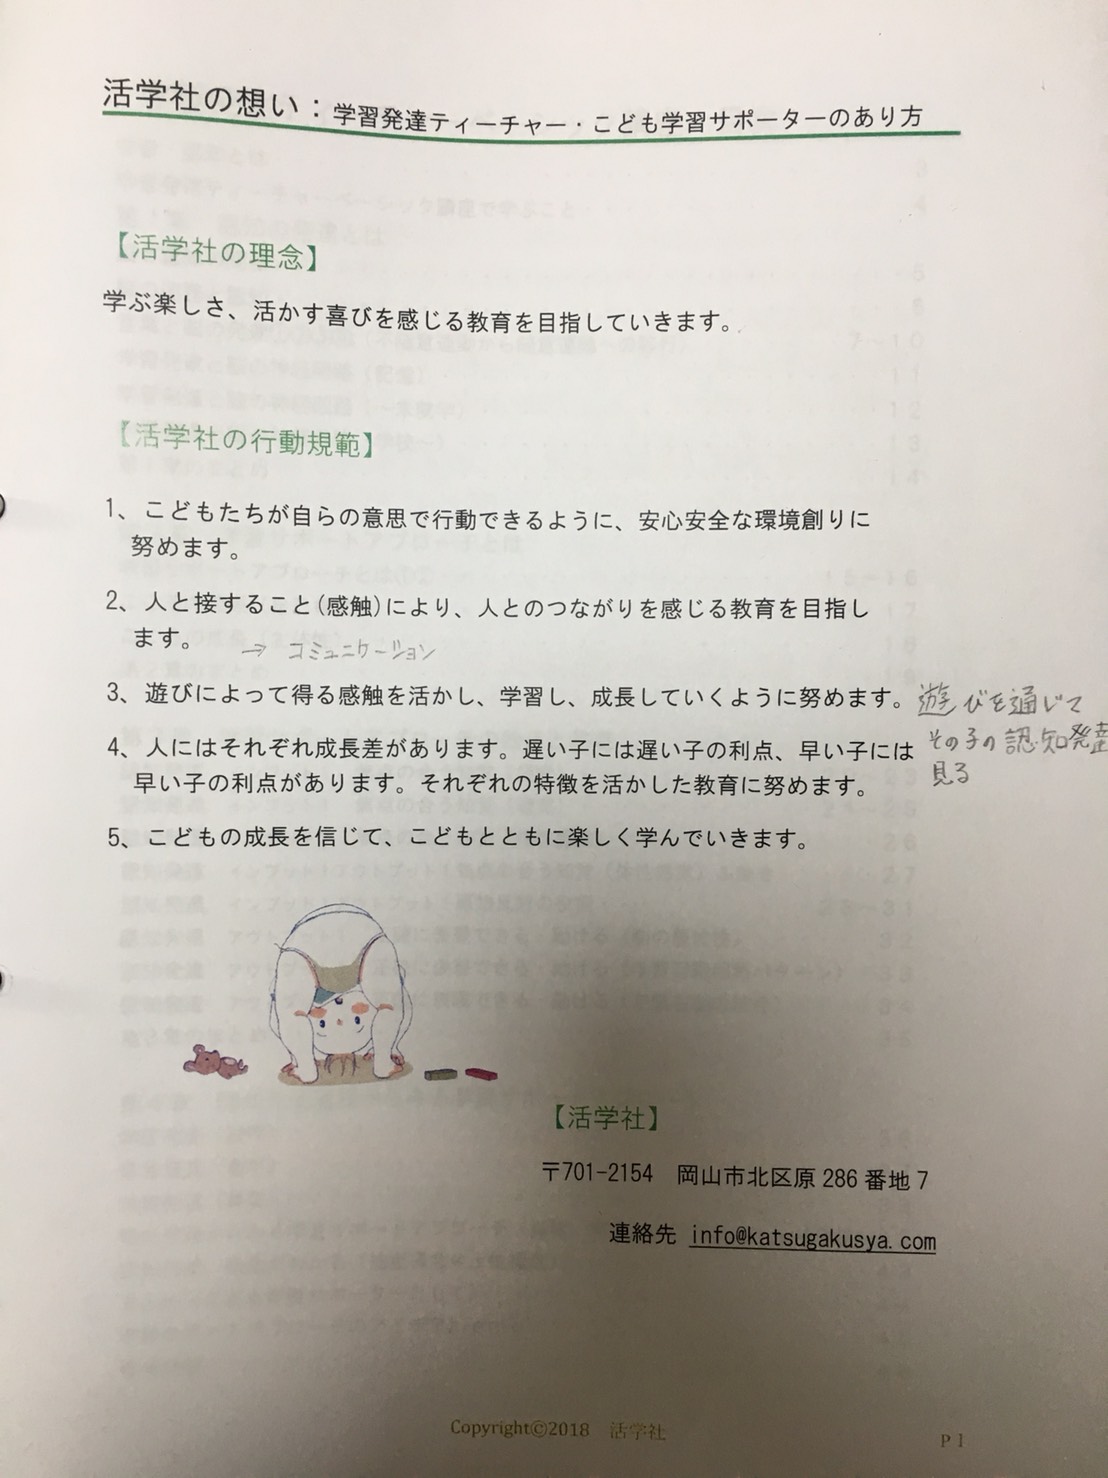 活学社の想い：学習発達ティーチャー・こども学習サポーターのあり方
【活学社の理念】
学ぶ楽しさ、活かす喜びを感じる教育を目指していきます。
【活学社の行動規範】
1、こどもたちが自らの意思で行動できるように、安心安全な環境創りに
努めます。
2、人と接すること(感触)により、人とのつながりを感じる教育を目指し
ます。
→ コミュニケーション
3、遊びによって得る感触を活かし、学習し、成長していくように努めます。
遊びを通じて
その子の認知発達
見る
4、人にはそれぞれ成長差があります。遅い子には遅い子の利点、早い子には
早い子の利点があります。それぞれの特徴を活かした教育に努めます。
5、こどもの成長を信じて、こどもとともに楽しく学んでいきます。
【活学社】
〒701-2154　岡山市北区原 286 番地 7
連絡先 info@katsugakusya.com
Copyright©2018　活学社
P 1